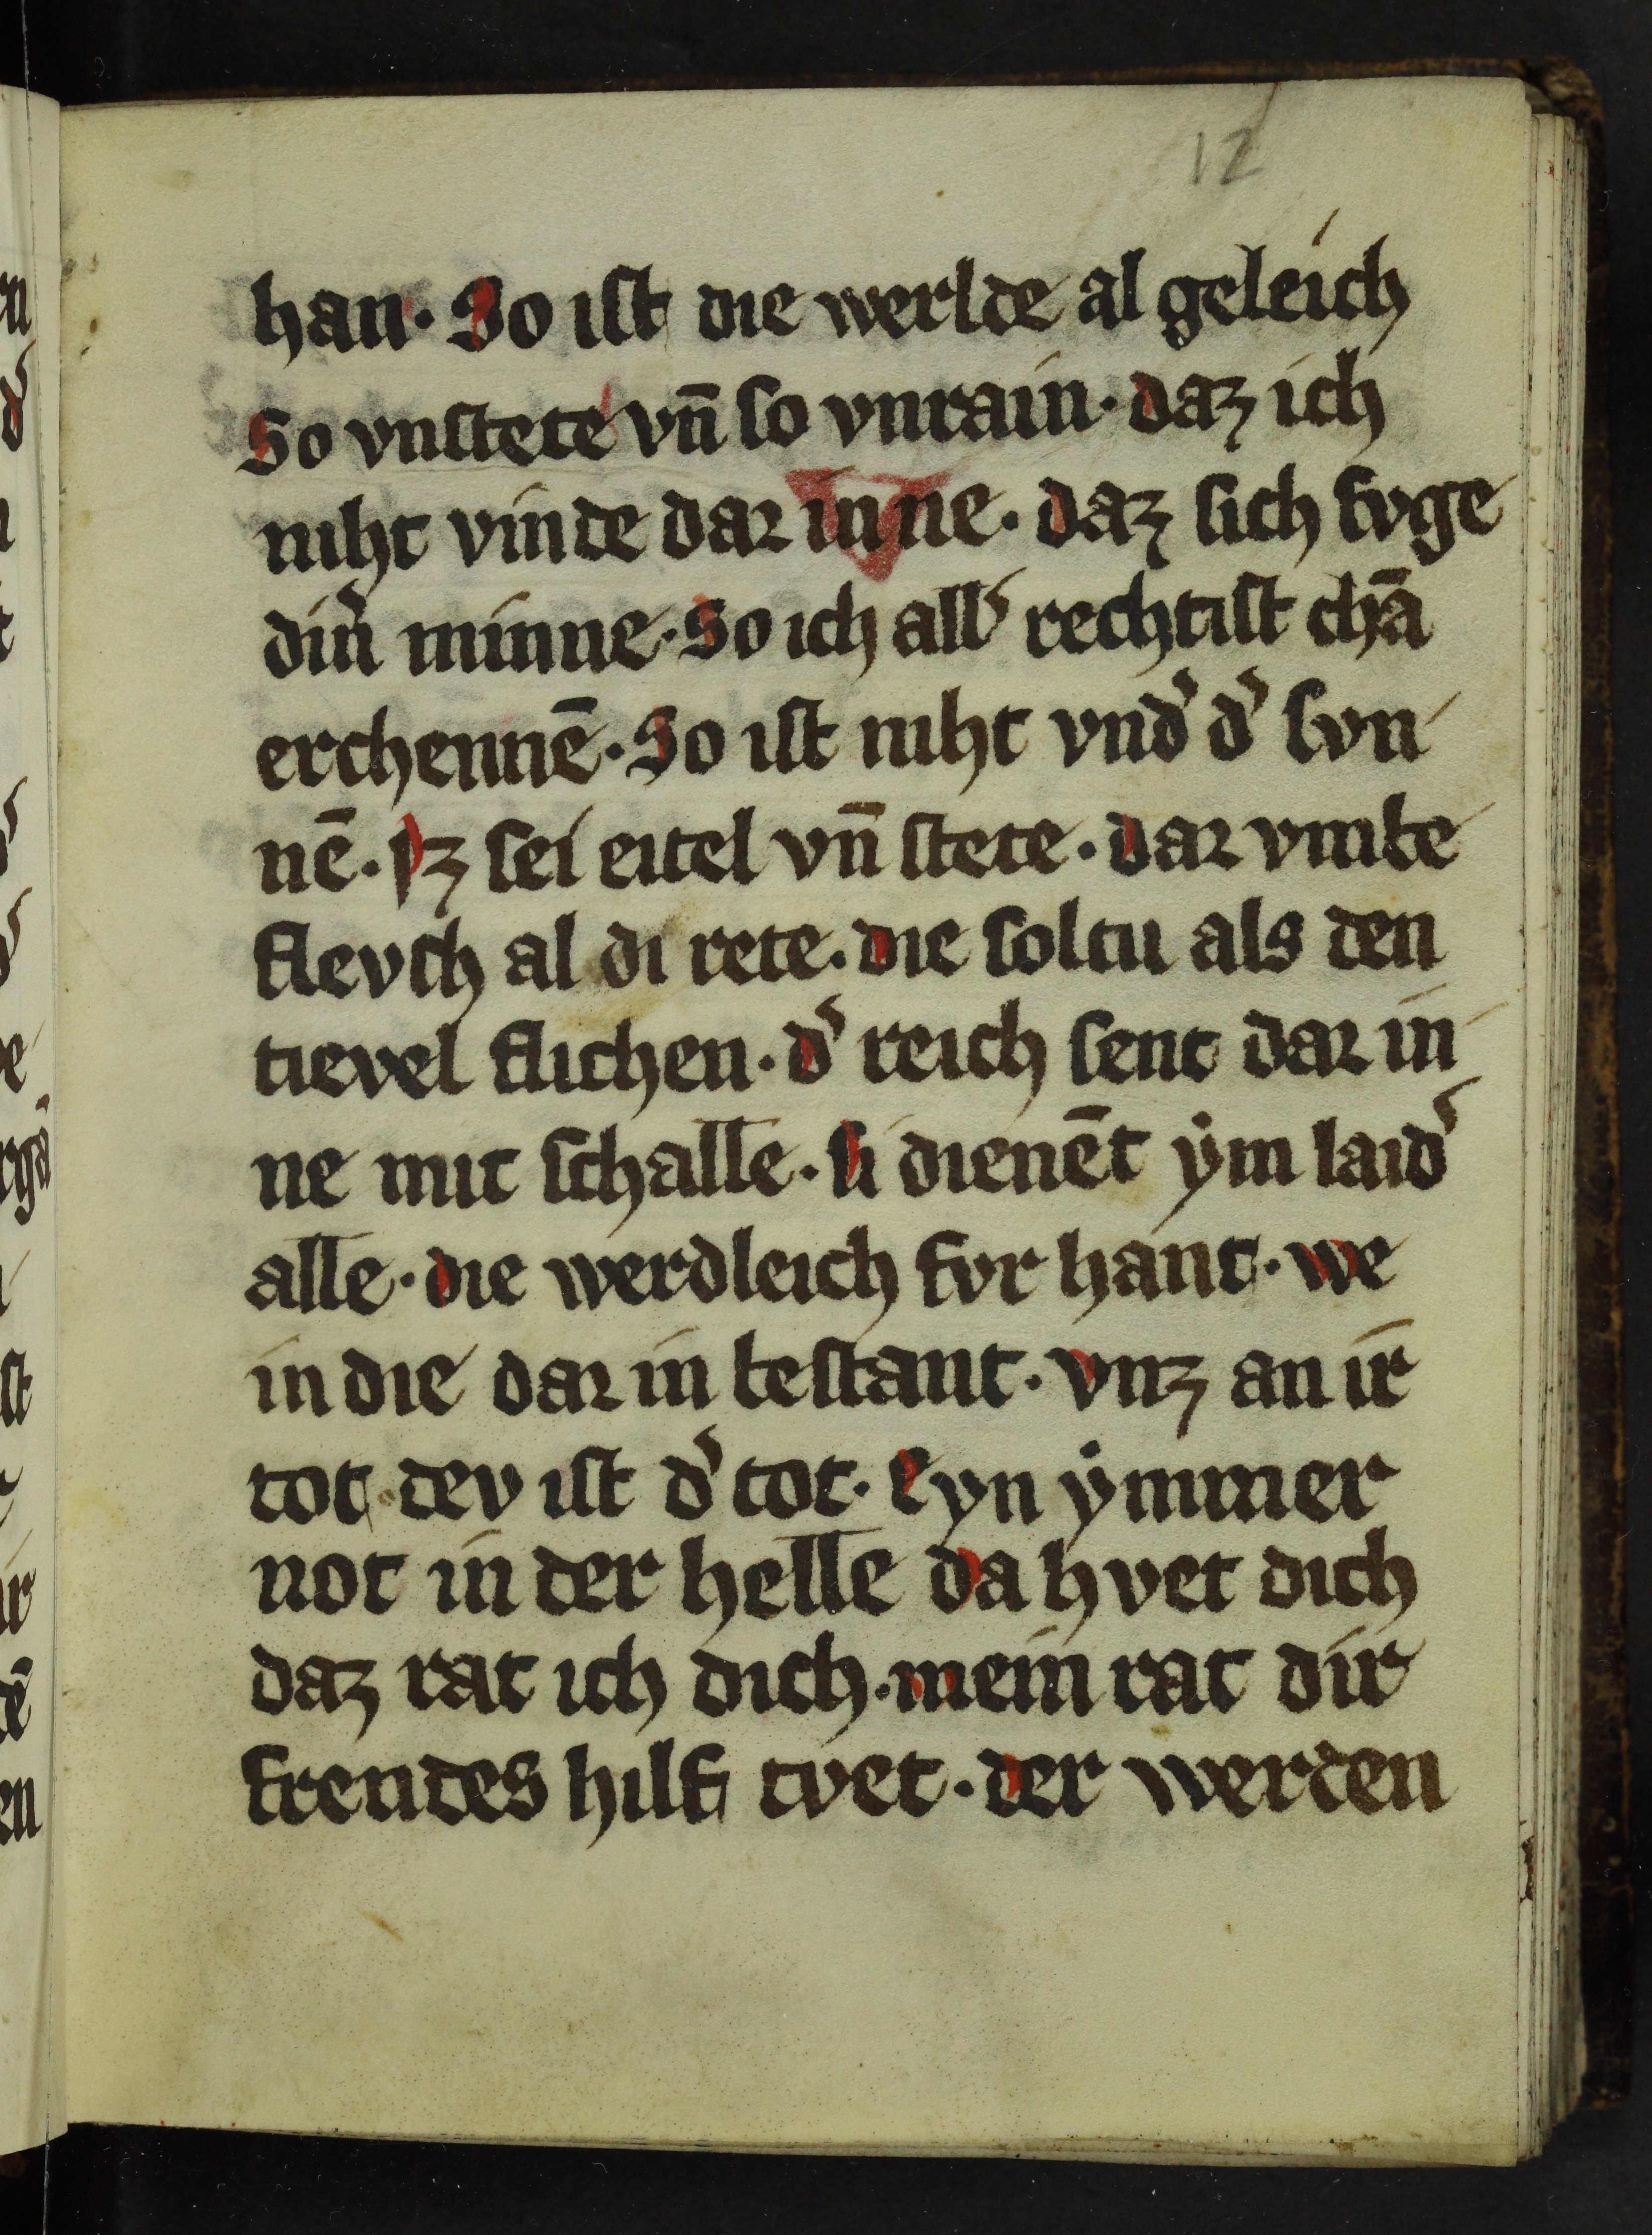 12
han. So ist die werlde al geleich
So vnstete vn̄ so vnrain. daz ich
niht vinde dar inne. daz sich fvge
din̉ minne. So ich all̉ rechtist chā
erchennē. So ist niht vnd̉ d̉ svn
nē. iz sei eitel vn̄ stete. dar vmbe
flevch al di rete. die soltu als den
tievel flichen. d̉ reich sent dar in
ne mit schalle. si dienēt ẏm laid̉
alle. die werdleich fvr hant. we
in die dar in bestant. vnz an ir
tot. dev ist d̉ tot. Eyn ẏmmer
not in der helle da hvet dich
daz rat ich dich. mein rat dir
frendes hilf tvet. der werden